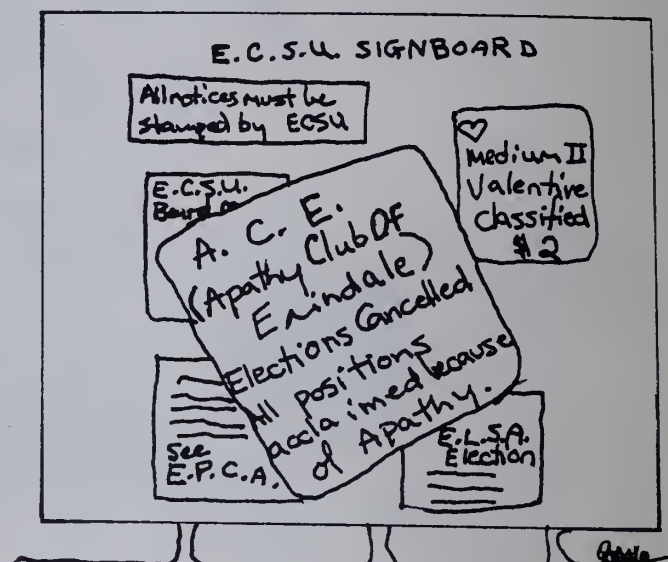 E.C.S.U. SIGNBOARD
All notices must be
stamped by ECSU
Medium II
Valentine
Classified
$2
E.C.S.U.
A. C. E.
(Apathy Club Of
Erindale)
Elections Cancelled
All positions
acclaimed because
of Apathy.
See
E.P.C.A.
E.L.S.A.
Election